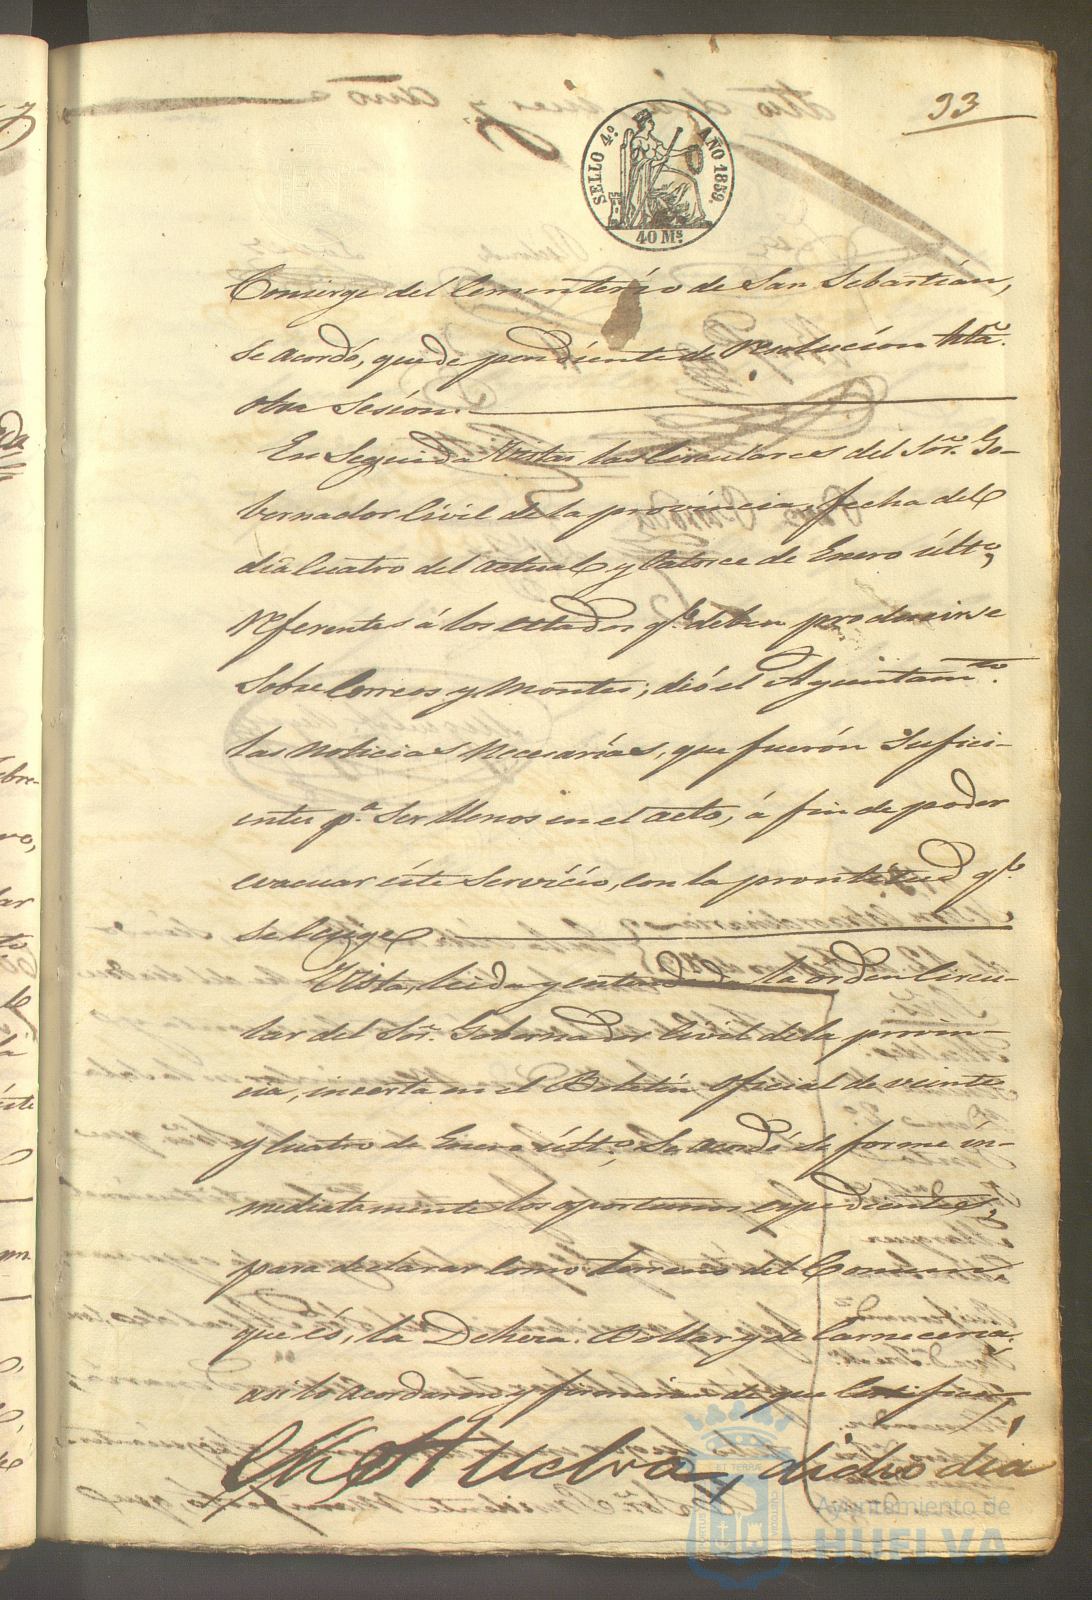 93
SELLO 4.º AÑO 1859.
40 Ms.
Conserge del Cementerio de San Sebastián,
se acordó, quede pendiente de resolucion htã.
otra sesion.
En seguida vistas las Circulares del Sor. Go-
bernador Civil de la provincia, fecha del
dia cuatro del actual y catorce de Enero últo,
referentes á los estados qe. deben producirse
sobre Cerreos y Montes; dió el Ayuntamto.
las noticias necesarias, que fuerón sufici-
entes pa. ser llenos en el acto, á fin de poder
evacuar éste servicio, con la prontitud qe.
se exige
Vista, leida y entendida la orden Circu-
lar del Sor. Gobernador Civil de la provin-
cia, inserta en el Boletin oficial de veinte
y cuatro de Enero últo; se acordó se forme in-
mediatamente los oportunos expedientes,
para declarar como terreno del Comun,
que és, la Dehesa Bollar y de Carneceria.
asi lo acordarón y firmarón de que certifico,
En Huelva, dicho dia
Ayuntamiento de
HUELVA